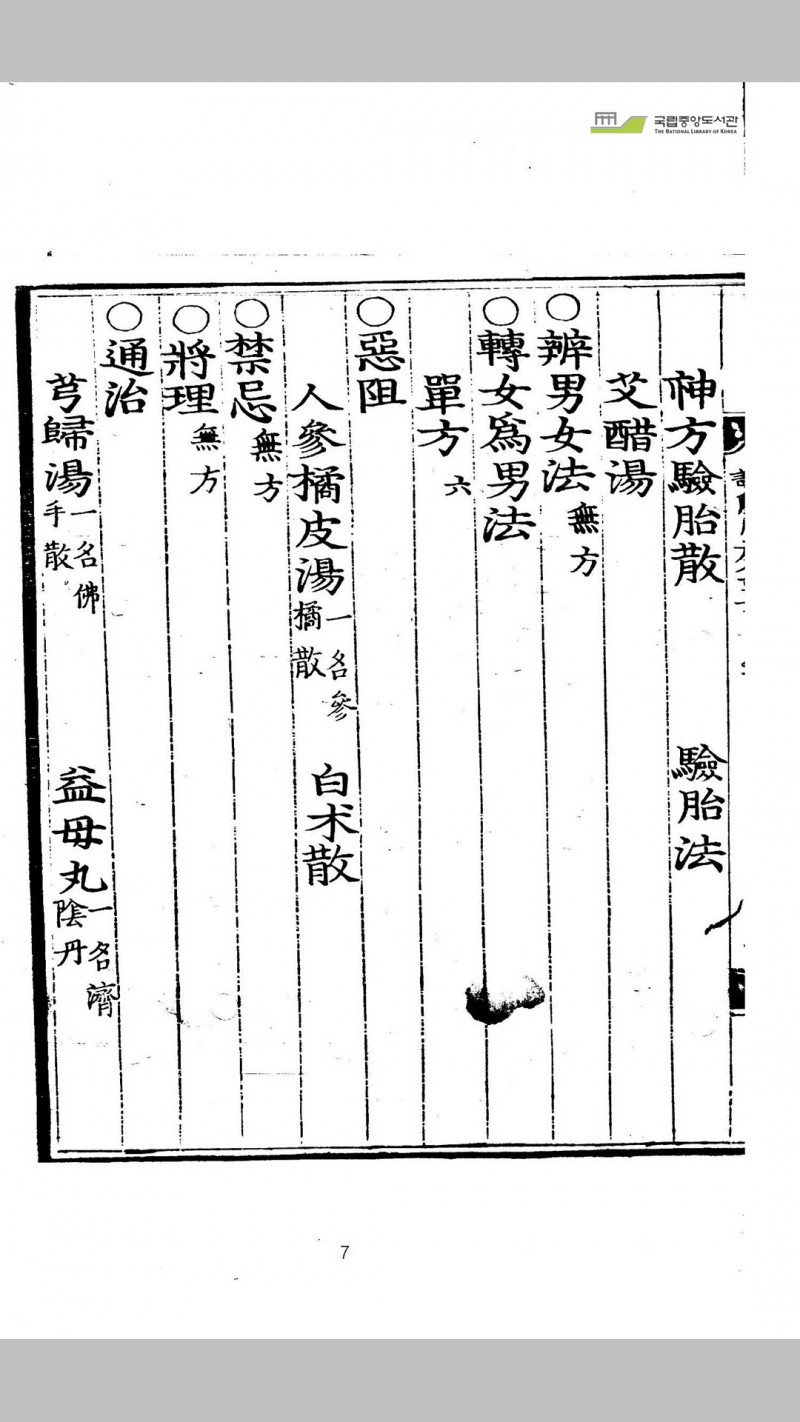 국립중앙도서관
THE NATIONAL LIBRARY OF KOREA
神方驗胎散 驗胎法
艾醋湯
○辨男女法 無方
○轉女爲男法
單方 六
○惡阻
人參橘皮湯 一名參橘散 白朮散
○禁忌 無方
○將理 無方
○通治
芎歸湯 一名佛手散 益母丸 一名濟陰丹
7